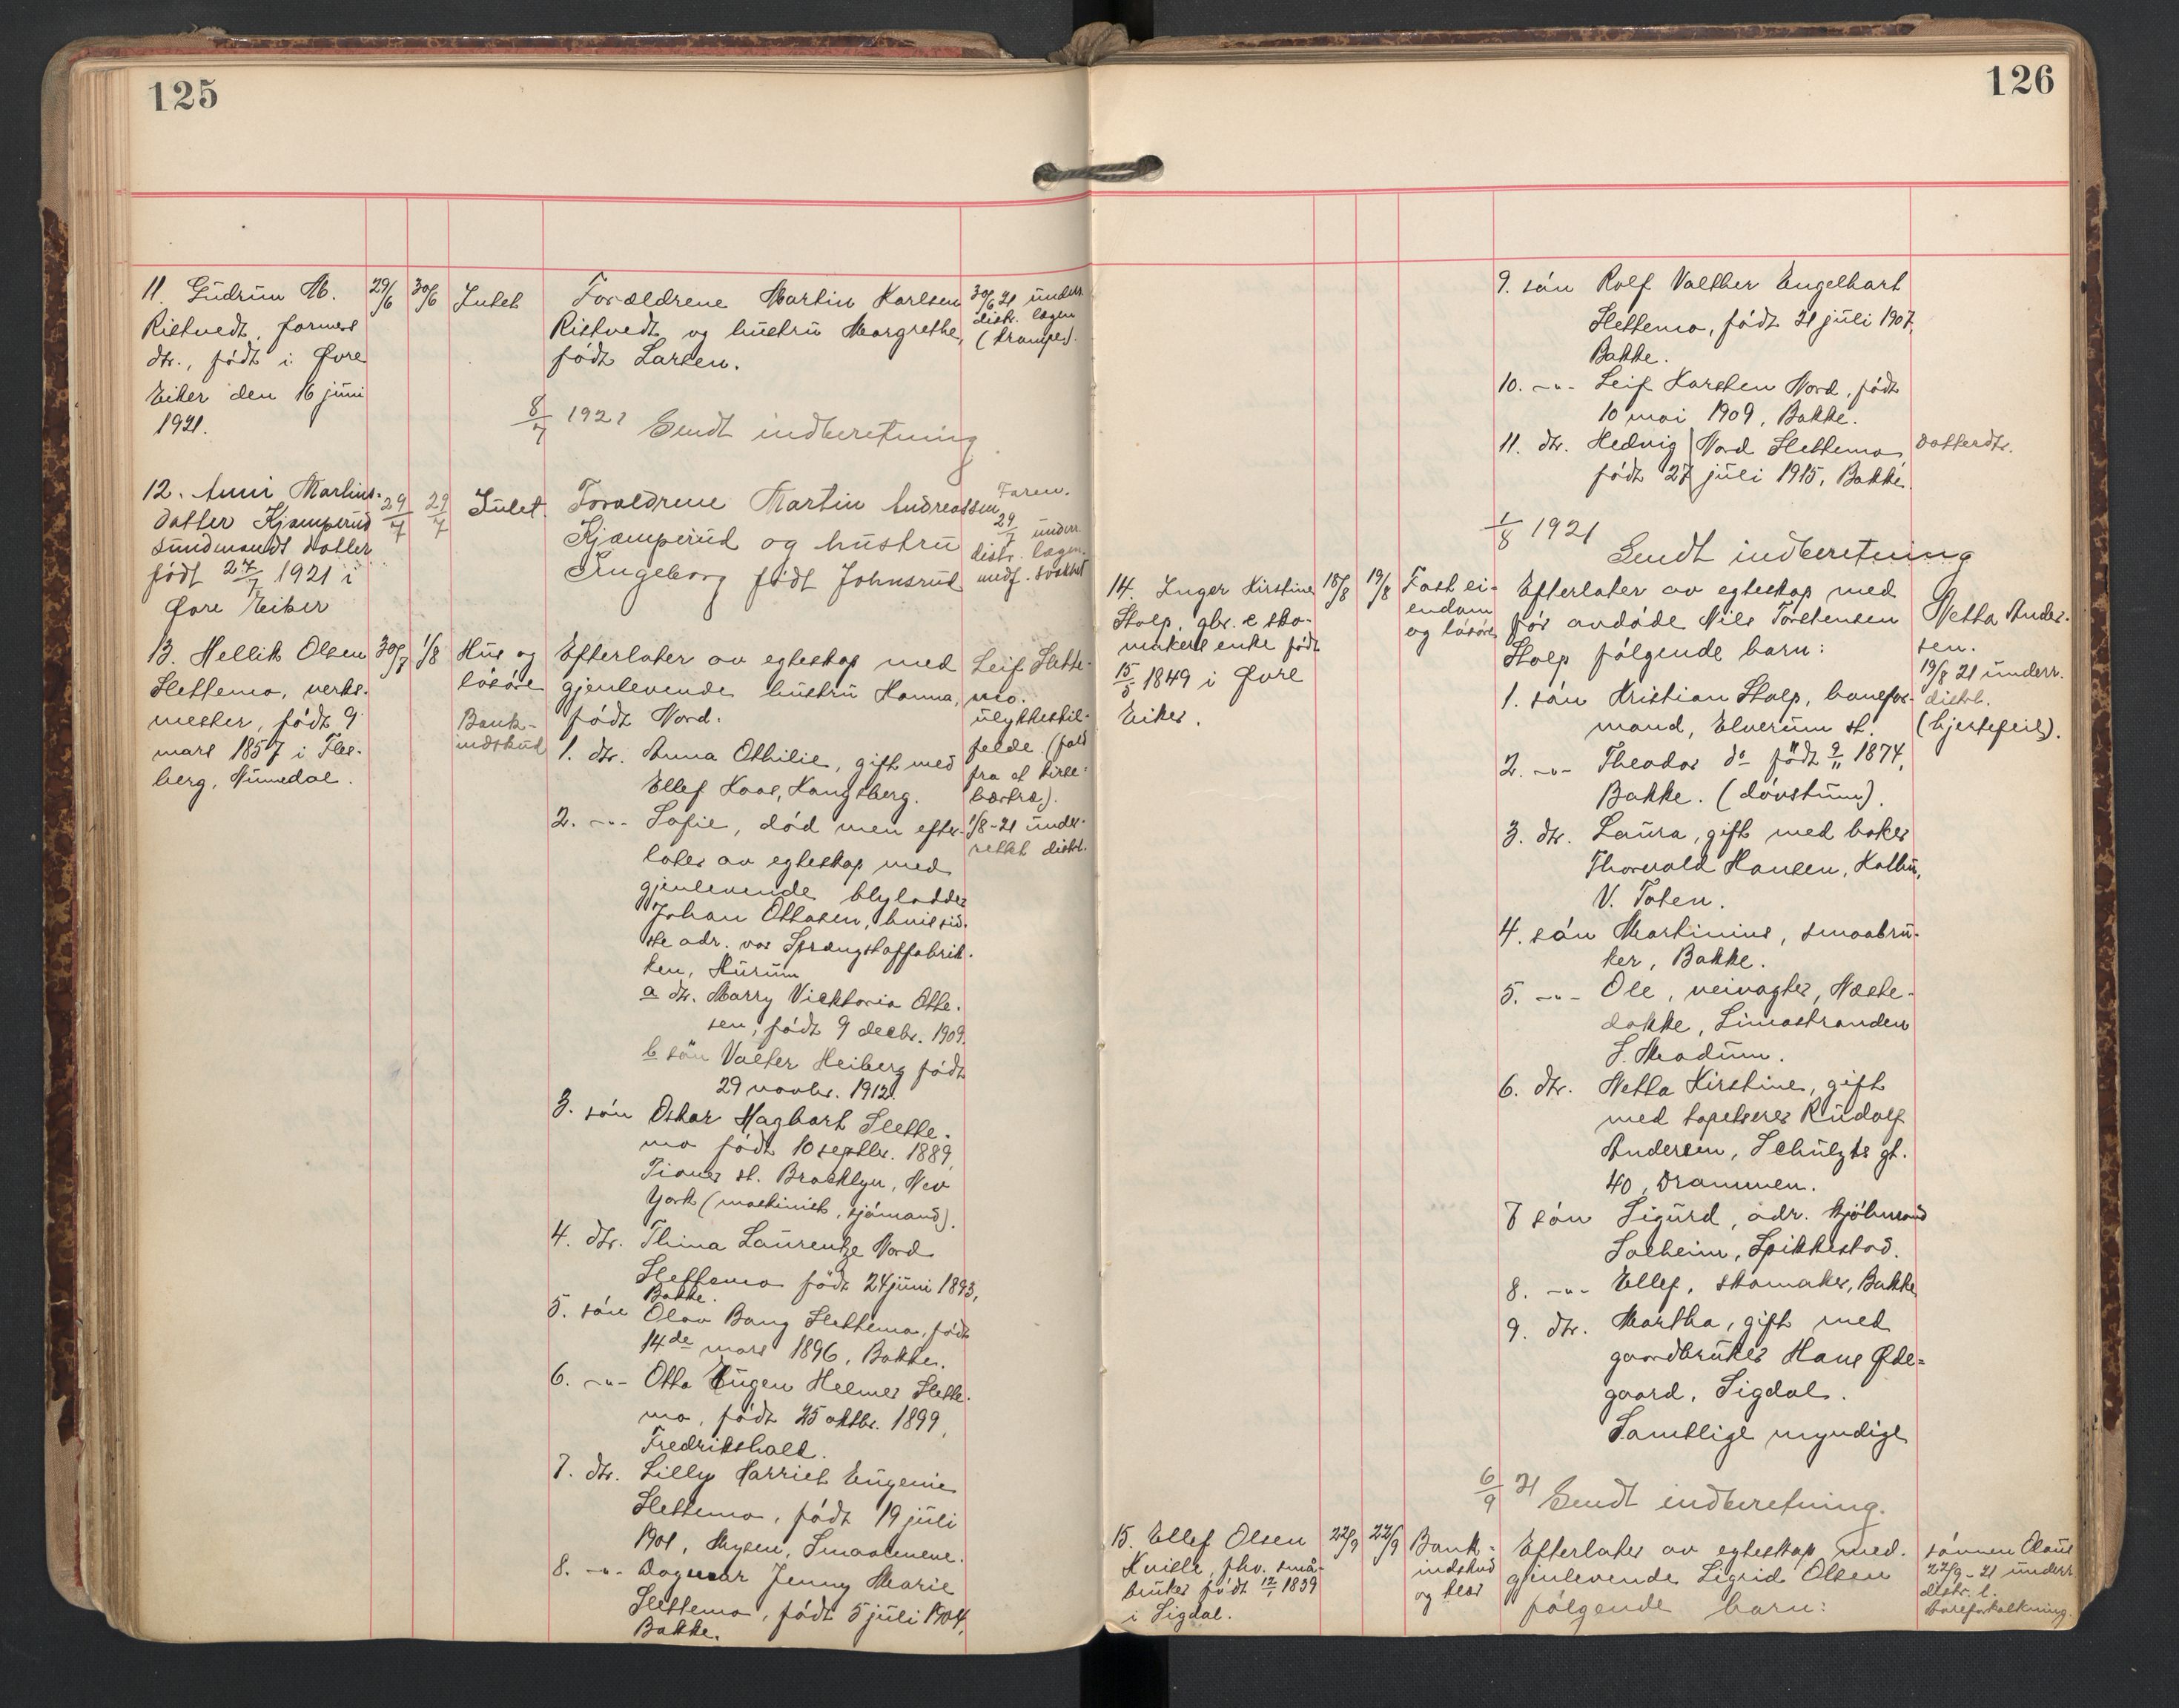 125
11. Gudrun M.
Ristvedt, farmers
dtr., født i Øvre
Eiker den 16 juni
1921.
29/6
30/6
Intet
Forældrene Martin Karlsen
Ristvedt og hustru Margrethe,
født Larsen.
30/6 21 underr.
distr. lægen
(krampe).
8/7 1921 Sendt indberetning
12. Anni Martins-
datter Kjæmperud
født 27/7 1921 i
Øvre Eiker
29/7
29/7
Intet.
Forældrene Martin Andreassen
Kjæmperud og hustru
Ingeborg født Johnsrud
Faren.
29/7 underr.
distr. lægen.
medf. svakhet
13. Hellik Olsen
Slettemo, verks-
mester, født 9
mars 1857 i Fles-
berg, Numedal.
30/7
1/8
Hus og
løsøre
Bank-
indskud
Efterlater av egteskap med
gjenlevende hustru Hanna,
født Nord.
1. dtr. Anna Othilie, gift med
Ellef Kaas, Kongsberg.
2. -"- Sofie, død men efter-
later av egteskap med
gjenlevende blylodder
Johan Ottosen, hvis sid-
ste adr. var Sprængstoffabrik-
ken, Hurum
a dtr. Marry Viektoria Otte-
sen, født 9 decbr. 1909.
b søn Valter Heiberg født
29 novbr. 1912.
3. søn Oskar Hagbart Slette-
mo født 10 septbr. 1889,
Pioner st. Brooklyn, New
York (maskinist, sjømand).
4. dtr. Thina Laurentze Nord
Slettemo født 24 juni 1893,
Bakke.
5. søn Olav Bang Slettemo, født
14de mars 1896, Bakke.
6. -"- Otto Eugen Helmer Slette-
mo, født 25 oktbr. 1899,
Fredrikshald.
7. dtr. Lilly Harriet Eugenie
Slettemo, født 19 juli
1901, Mysen, Smaalenene.
8. -"- Dagmar Jenny Marie
Slettemo, født 5 juli 1904,
Bakke.
Leif Slette-
mo.
ulykkestil-
felde. (fald
fra et kirse-
bærtræ).
1/8-21 under-
rettet distrl.
126
9. søn Rolf Valther Engelhart
Slettemo, født 21 juli 1907,
Bakke.
10. -"- Leif Karsten Nord, født
10 mai 1909, Bakke.
11. dtr. Hedvig Nord Slettemo
født 27 juli 1915, Bakke.
datterdtr.
1/8 1921
Sendt indberetning
14. Inger Kirstine
Stolp, gbr. & sko-
makers enke født
15/5 1849 i Øvre
Eiker.
18/8
19/8
Fast ei-
endom
og løsøre
Efterlater av egteskap med
før avdøde Nils Torstensen
Stolp følgende barn:
1. søn Kristian Stolp, banefor-
mand, Elverum st.
2. -"- Theodor do født 9/11 1874,
Bakke. (døvstum).
3. dtr. Laura, gift med baker
Thorvald Hansen, Kolbu,
V. Toten.
4. søn Martinius, smaabru-
ker, Bakke.
5. -"- Ole, veivogter, Næste-
dokke, Simostranden
S. Modum.
6. dtr. Netta Kirstine, gift
med tapetserer Rudolf
Andersen, Schulzts gt.
40, Drammen.
7 søn Sigurd, adr. Kjøbmand
Solheim, Spikkestad.
8. -"- Ellef, skomaker, Bakke
9. dtr. Martha, gift med
gaardbruker Hans Øde-
gaard, Sigdal.
Samtlige myndige
Netta Ander-
sen.
19/8 21 underr.
distrl.
(hjertefeil).
6/9 21 Sendt indberetning.
15. Ellef Olsen
Kvisle, fhv. små-
bruker født 12/1 1839
i Sigdal.
22/9
22/9
Bank-
indskud
og klær
Efterlater av egteskap med
gjenlevende Sigrid Olsen
følgende barn:
sønnen Olaus
22/9-21 underr.
distr. l.
Aareforkalkning.